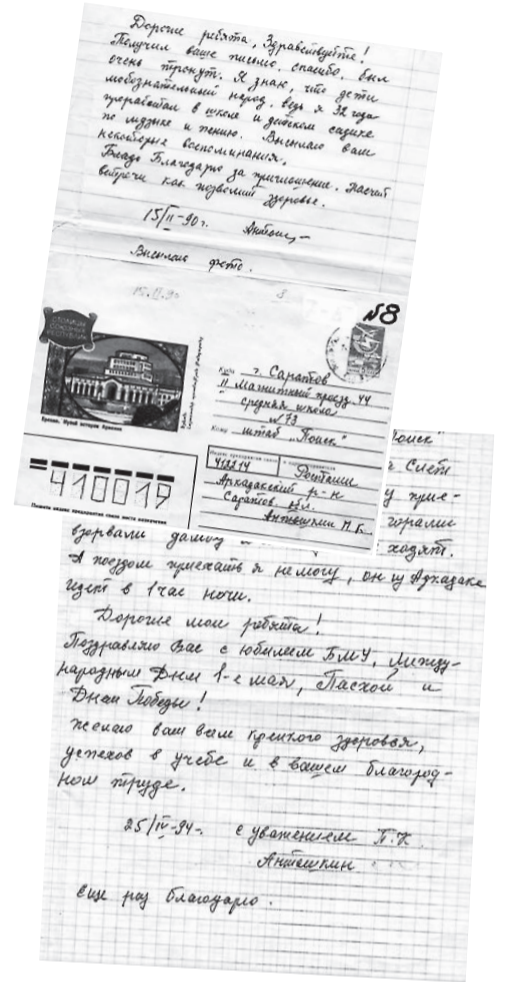 Дорогие ребята, Здравствуйте!
Получил ваше письмо. спасибо. был
очень тронут. Я знаю, что дети
любознательный народ. ведь я 32 года
проработал в школе и детском садике
по музыке и пению. Высылаю вам
некоторые воспоминания.
Благодарю за приглашение. Насчёт
встречи как позволит здоровье.
15/II-90г. Антош
Высылаю фото.
№8
СТОЛИЦЫ СОЮЗНЫХ РЕСПУБЛИК
Ереван. Музей истории Армении
Куда г. Саратов
II Магнитный проезд 44
средняя школа
№73
Кому штаб „Поиск"
412214 Росташи
Аркадакский р-н
Саратов обл.
Антошкин П.К.
410019
Пишите индекс предприятия связи места назначения
Поиск"
Слёт
у прие-
горали
взорвали дамбу ходят.
А поездом приехать я не могу, он из Аркадака
идёт в 1 час ночи.
Дорогие мои ребята!
Поздравляю Вас с юбилеем БМУ, Между-
народным Днём 1-е мая, Пасхой и
Днём Победы!
желаю вам всем крепкого здоровья,
успехов в учебе и в вашем благород-
ном труде.
25/IV-94г. с уважением П.К
Антошкин
Ещё раз благодарю.